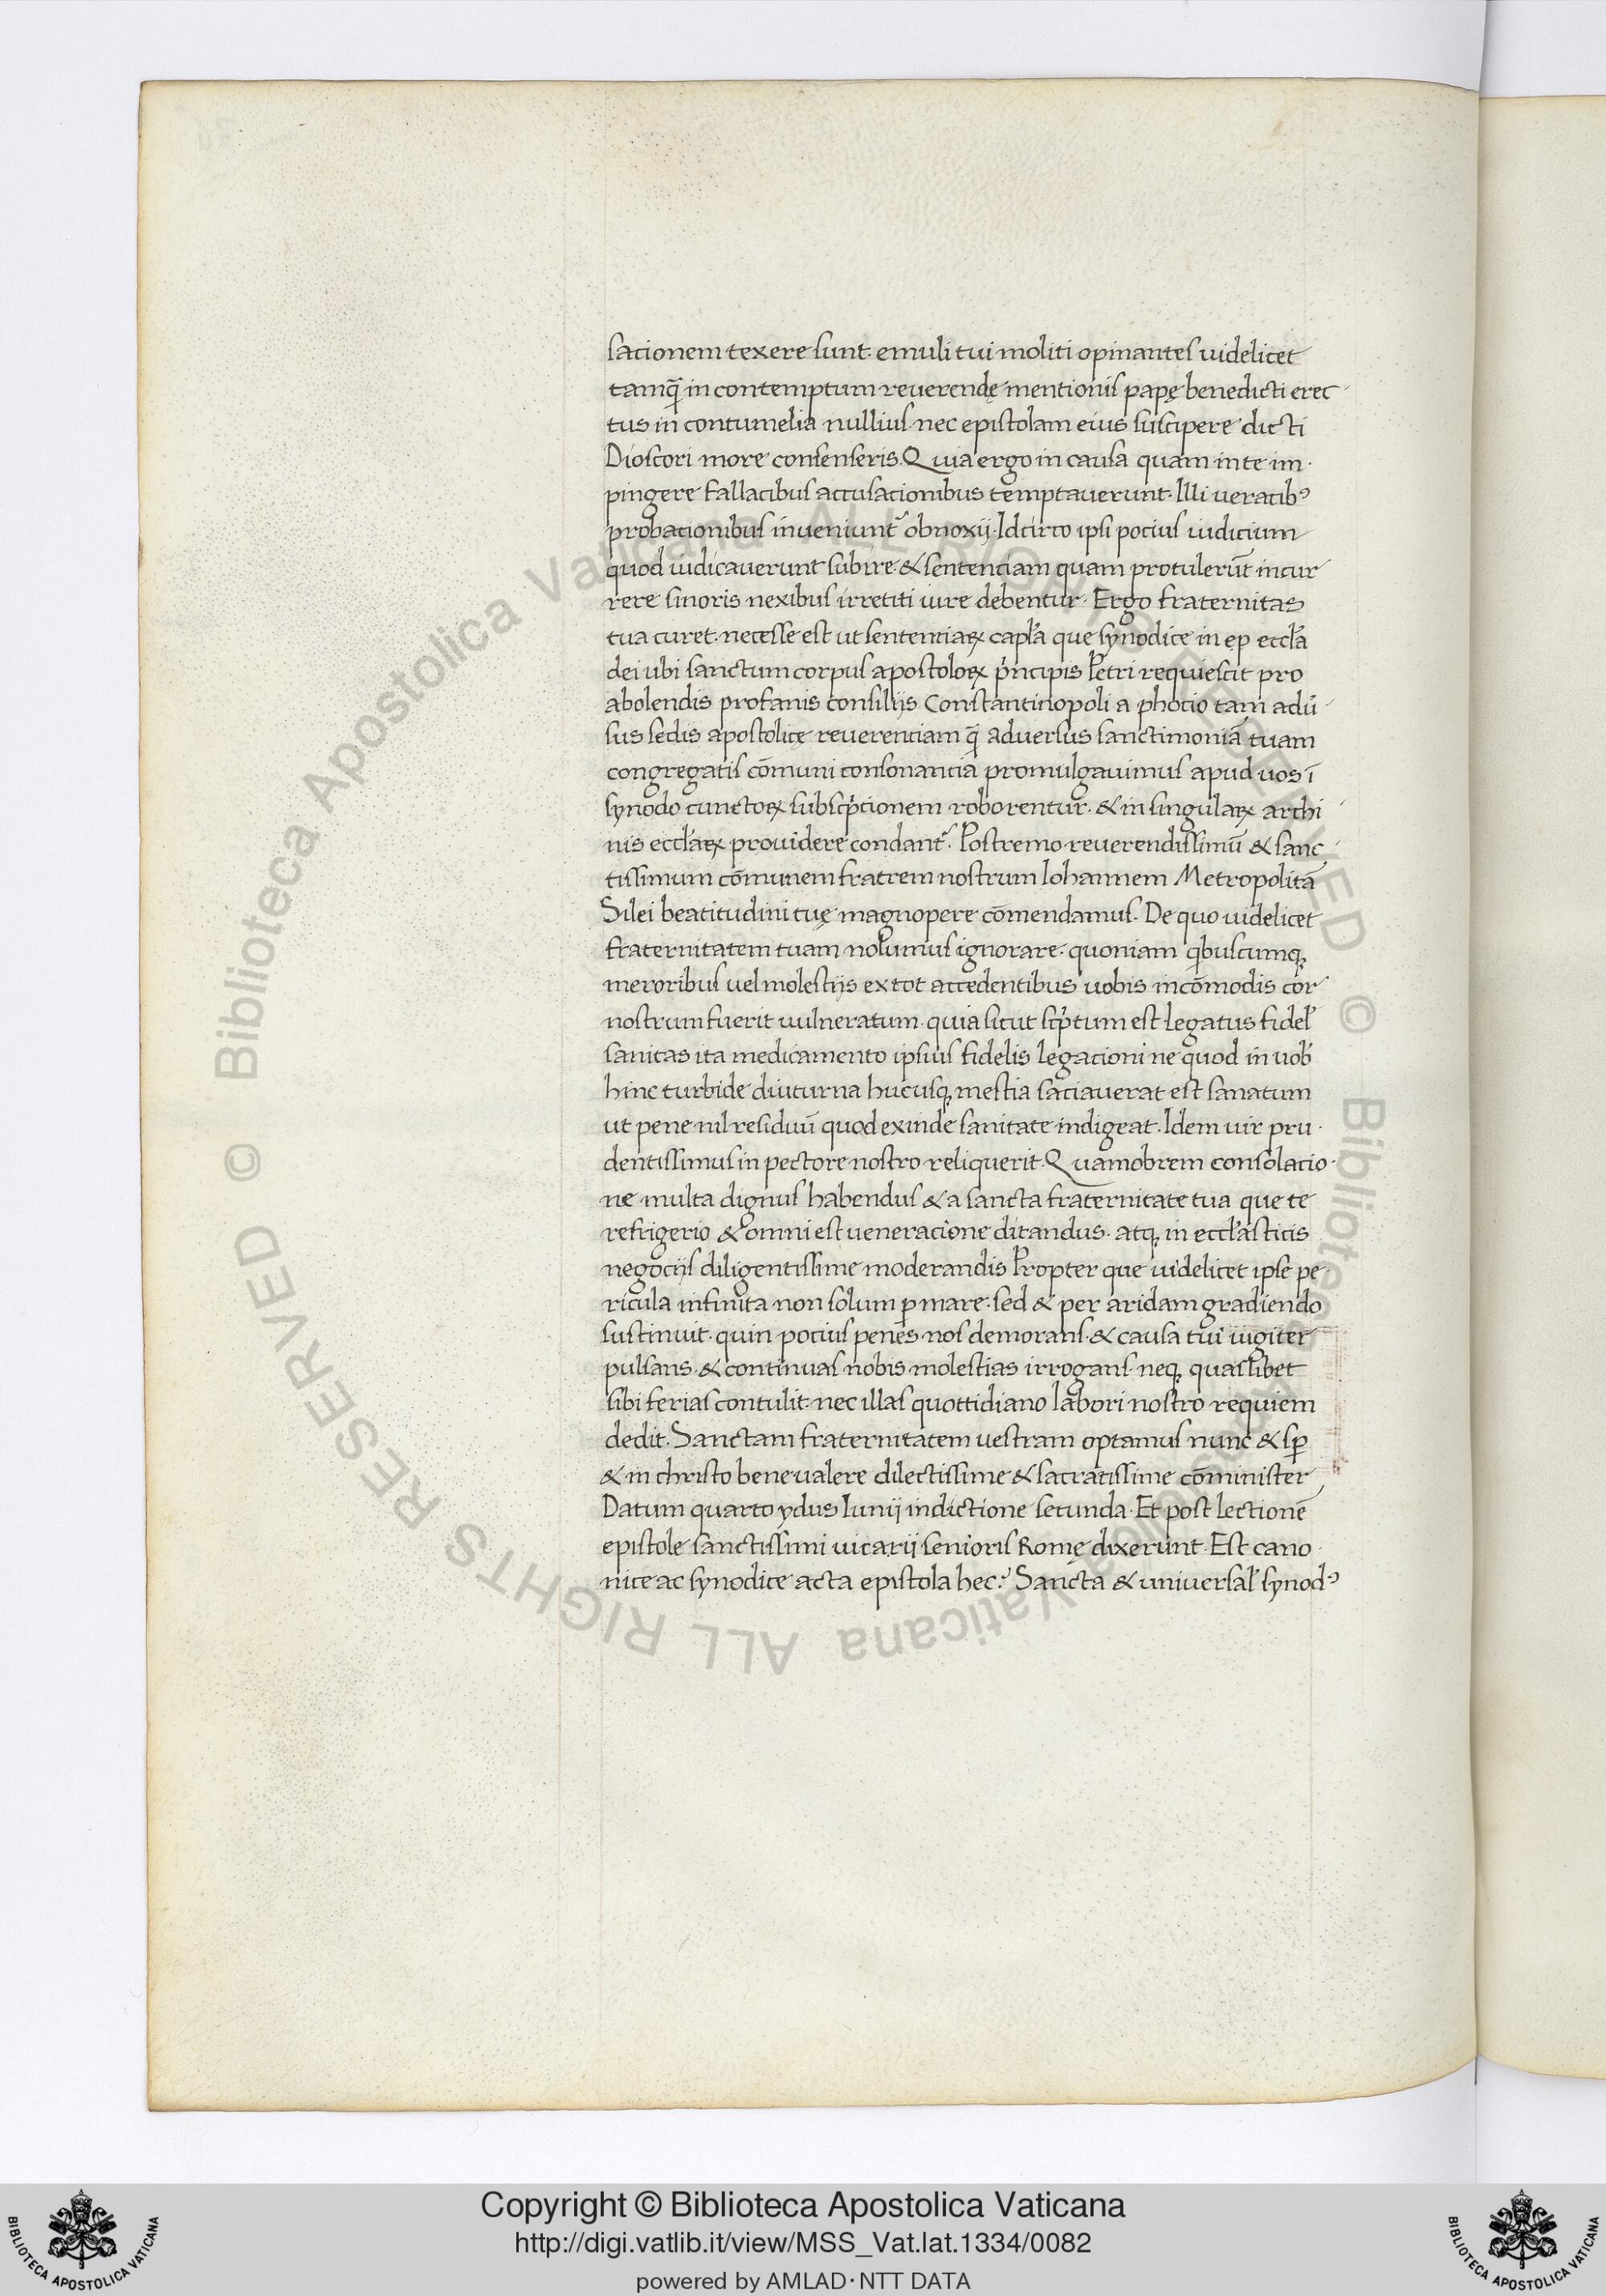 sacionem texere sunt. emuli tui moliti opinantes uidelicet
tamq̄ in contemptum reuerendę mentionis papę benedicti erec
tus in contumelia nullius nec epistolam eius suscipere dicti
Dioscori more consenseris. Quia ergo in causa quam in te im
pingere fallacibus accusacionibus temptauerunt. Illi ueracibꝰ
probacionibus inueniunt᷑ obnoxij. Idcirco ipsi pocius iudicium
quod iudicauerunt subire & sentenciam quam protulerūt incur
rere sinoris nexibus irretiti iure debentur. Ergo fraternitas
tua curet. necesse est ut sententiaꝝ capl̃a que synodice in eccl̃a
dei ubi sanctum corpus apostoloꝝ p̃ncipis Petri requiescit pro
abolendis profanis consilijs Constantinopoli a photio tam adū
sus sedis apostolicę reuerenciam q̄ aduersus sanctimoniā tuam
congregatis cōmuni consonancia promulgauimus apud uos ī
synodo cunctoꝝ subscp̃tionem roborentur. & in singulaꝝ archi
uis eccl̃aꝝ prouidere condant᷑. Postremo reuerendissimū & sanc
tissimum cōmunem fratrem nostrum Iohannem Metropolitā
Silei beatitudini tuę magnopere cōmendamus. De quo uidelicet
fraternitatem tuam nolumus ignorare. quoniam qͥbuscumqꝫ
meroribus uel molestijs ex tot accedentibus uobis incōmodis cor
nostrum fuerit uulneratum. quia sicut scp̃tum est legatus fidel̃
sanitas ita medicamento ipsius fidelis legacioni ne quod in uob̃
hinc turbide diuturna hucusqꝫ mestia saciauerat est sanatum
ut pene nil residuū quod exinde sanitate indigeat. Idem uir pru
dentissimus in pectore nostro reliquerit. Quamobrem consolacio
ne multa dignus habendus & a sancta fraternitate tua que te
refrigerio & omni est ueneracione ditandus. atqꝫ in eccl̃asticis
negocijs diligentissime moderandis Propter que uidelicet ipse pe
ricula infinita non solum ꝑ mare. sed & per aridam gradiendo
sustinuit. quin pocius penes nos demorans. & causa tui iugiter
pulsans. & continuas nobis molestias irrogans. neqꝫ quaslibet
sibi ferias contulit. nec illas quottidiano labori nostro requiem
dedit. Sanctam fraternitatem uestram optamus nunc & sp̄
& in christo bene ualere dilectissime & sacratissime cōminister
Datum quarto ydus Iunij indictione secunda. Et post lectionē
epistole sanctissimi uicarij senioris Romę dixerunt. Est cano
nice ac synodice acta epistola hec? Sancta & uniuersal̃ synodꝰ
Copyright © Biblioteca Apostolica Vaticana
http://digi.vatlib.it/view/MSS_Vat.lat.1334/0082
powered by AMLAD·NTT DATA
BIBLIOTECA APOSTOLICA VATICANA
BIBLIOTECA APOSTOLICA VATICANA
© Biblioteca Apostolica Vaticana ALL RIGHTS RESERVED © Biblioteca Apostolica Vaticana ALL RIGHTS RESERVED